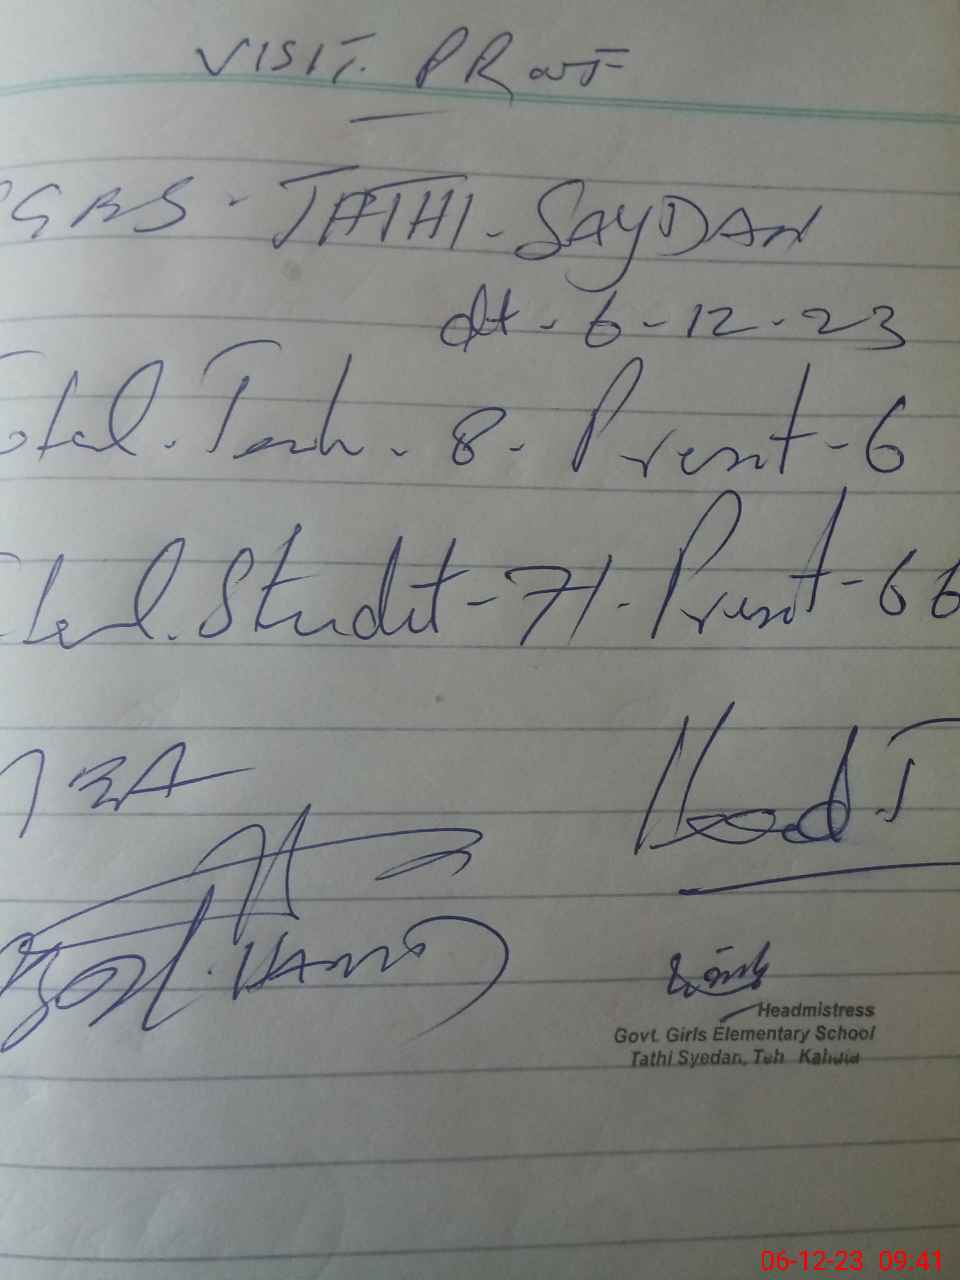 VISIT. PRooF
GES - TATHI - SAYDAN
dt - 6 - 12 - 23
Total. Teach - 8 - Present - 6
Total. Student - 71 - Present - 66
Head. T
Headmistress
Govt. Girls Elementary School
Tathi Syedan, Teh Kahuta
06-12-23 09:41